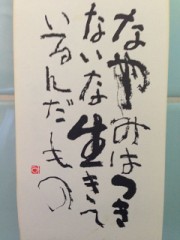 なやみはつき
ないな生きて
いるんだもの